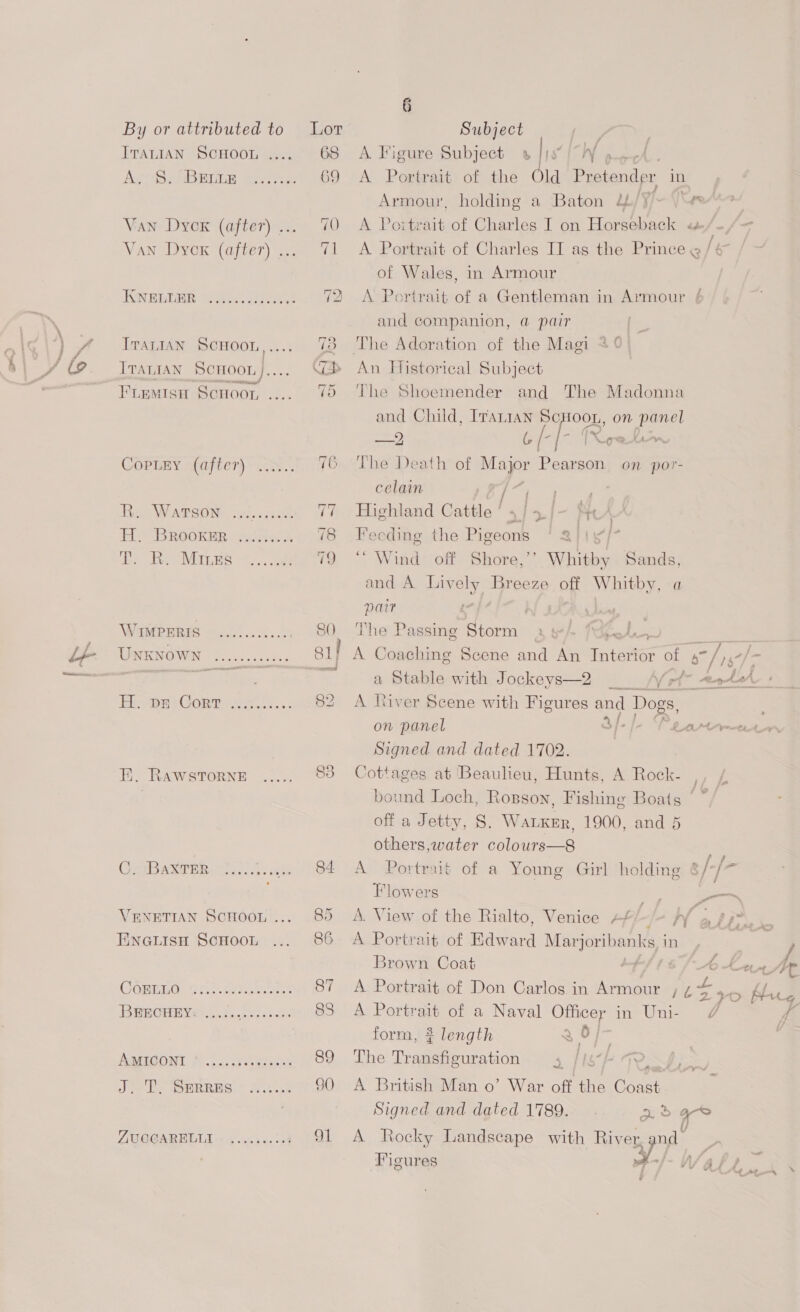 6
By or attributed to Lot Subject
ITALIAN SCHOOL .... 68 A Figure Subject
A. S. BELLE ........ 69 A Portrait of the Old Pretender in
Armour, holding a Baton
VAN DYCK (after) ... 70 A Portrait of Charles I on Horseback
VAN DYCK (after) ... 71 A Portrait of Charles II as the Prince
of Wales, in Armour
KNELLER ............. 72 A Portrait of a Gentleman in Armour
and companion, a pair
ITALIAN SCHOOL ..... 73 The Adoration of the Magi
ITALIAN SCHOOL .... An Historical Subject
FLEMISH SCHOOL .... 75 The Shoemender and The Madonna
and Child, ITALIAN SCHOOL, on panel
—2
COPLEY (after) ...... 76 The Death of Major Pearson on por-
celain
R. WATSON .......... 77 Highland Cattle
H. BROOKER ......... 78 Feeding the Pigeons
T. R. MILES ....... 79 “ Wind off Shore,” Whitby Sands,
and A Lively Breeze off Whitby, a
pair
WIMPERIS ........... 80 The Passing Storm
UNKNOWN ........... 81 A Coaching Scene and An Interior of
a Stable with Jockeys—2
H. DE CORT .......... 82 A River Scene with Figures and Dogs,
on panel
Signed and dated 1702.
E. RAWSTORNE ..... 83 Cottages at Beaulieu, Hunts, A Rock-
bound Loch, Rosson, Fishing Boats
off a Jetty, S. WALKER, 1900, and 5
others,water colours—8
C. BAXTER ........... 84 A Portrait of a Young Girl holding
Flowers
VENETIAN SCHOOL ... 85 A View of the Rialto, Venice
ENGLISH SCHOOL ... 86 A Portrait of Edward Marjoribanks, in
Brown Coat
COELLO .............. 87 A Portrait of Don Carlos in Armour
BEECHEY ............ 88 A Portrait of a Naval Officer in Uni-
form, ¾ length
AMICONI ............. 89 The Transfiguration
J. T. SERRES ....... 90 A British Man o’ War off the Coast
Signed and dated 1789.
ZUCCARELLI .......... 91 A Rocky Landscape with River and
Figures